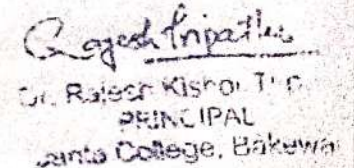 Rajesh Tripathi
Dr. Rajesh Kishor
PRINCIPAL
College, Bakewar